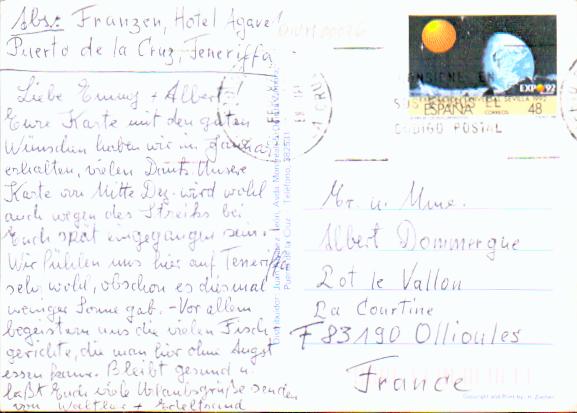 Abs: Franzen, Hotel Agave
Puerto de la Cruz, Teneriffa
Liebe Emmy + Albert!
Eure Karte mit den guten
Wünschen haben wir im Januar
erhalten, vielen Dank. Unsere
Karte von Mitte Dez. wird wohl
auch wegen des Streiks bei
Euch spät eingegangen sein.
Wir fühlen uns hier auf Teneriffa
sehr wohl, obschon es diesmal
weniger Sonne gab. - Vor allem
begeistern uns die vielen Fisch
gerichte, die man hier ohne Angst
essen kann. Bleibt gesund u.
laßt Euch viele Urlaubsgrüße senden
von Walther + Edeltraud
Distribuidor: Juan
Puerto de la Cruz Teléfono
EXPO 92
SEVILLA 1992
ESPAÑA
CORREOS
48
CONSIGNE EN
SUS
CODIGO POSTAL
Mr. u. Mme.
Albert Dommergue
Lot le Vallon
La Courtine
F 83190 Ollioules
France
Copyright and Print by